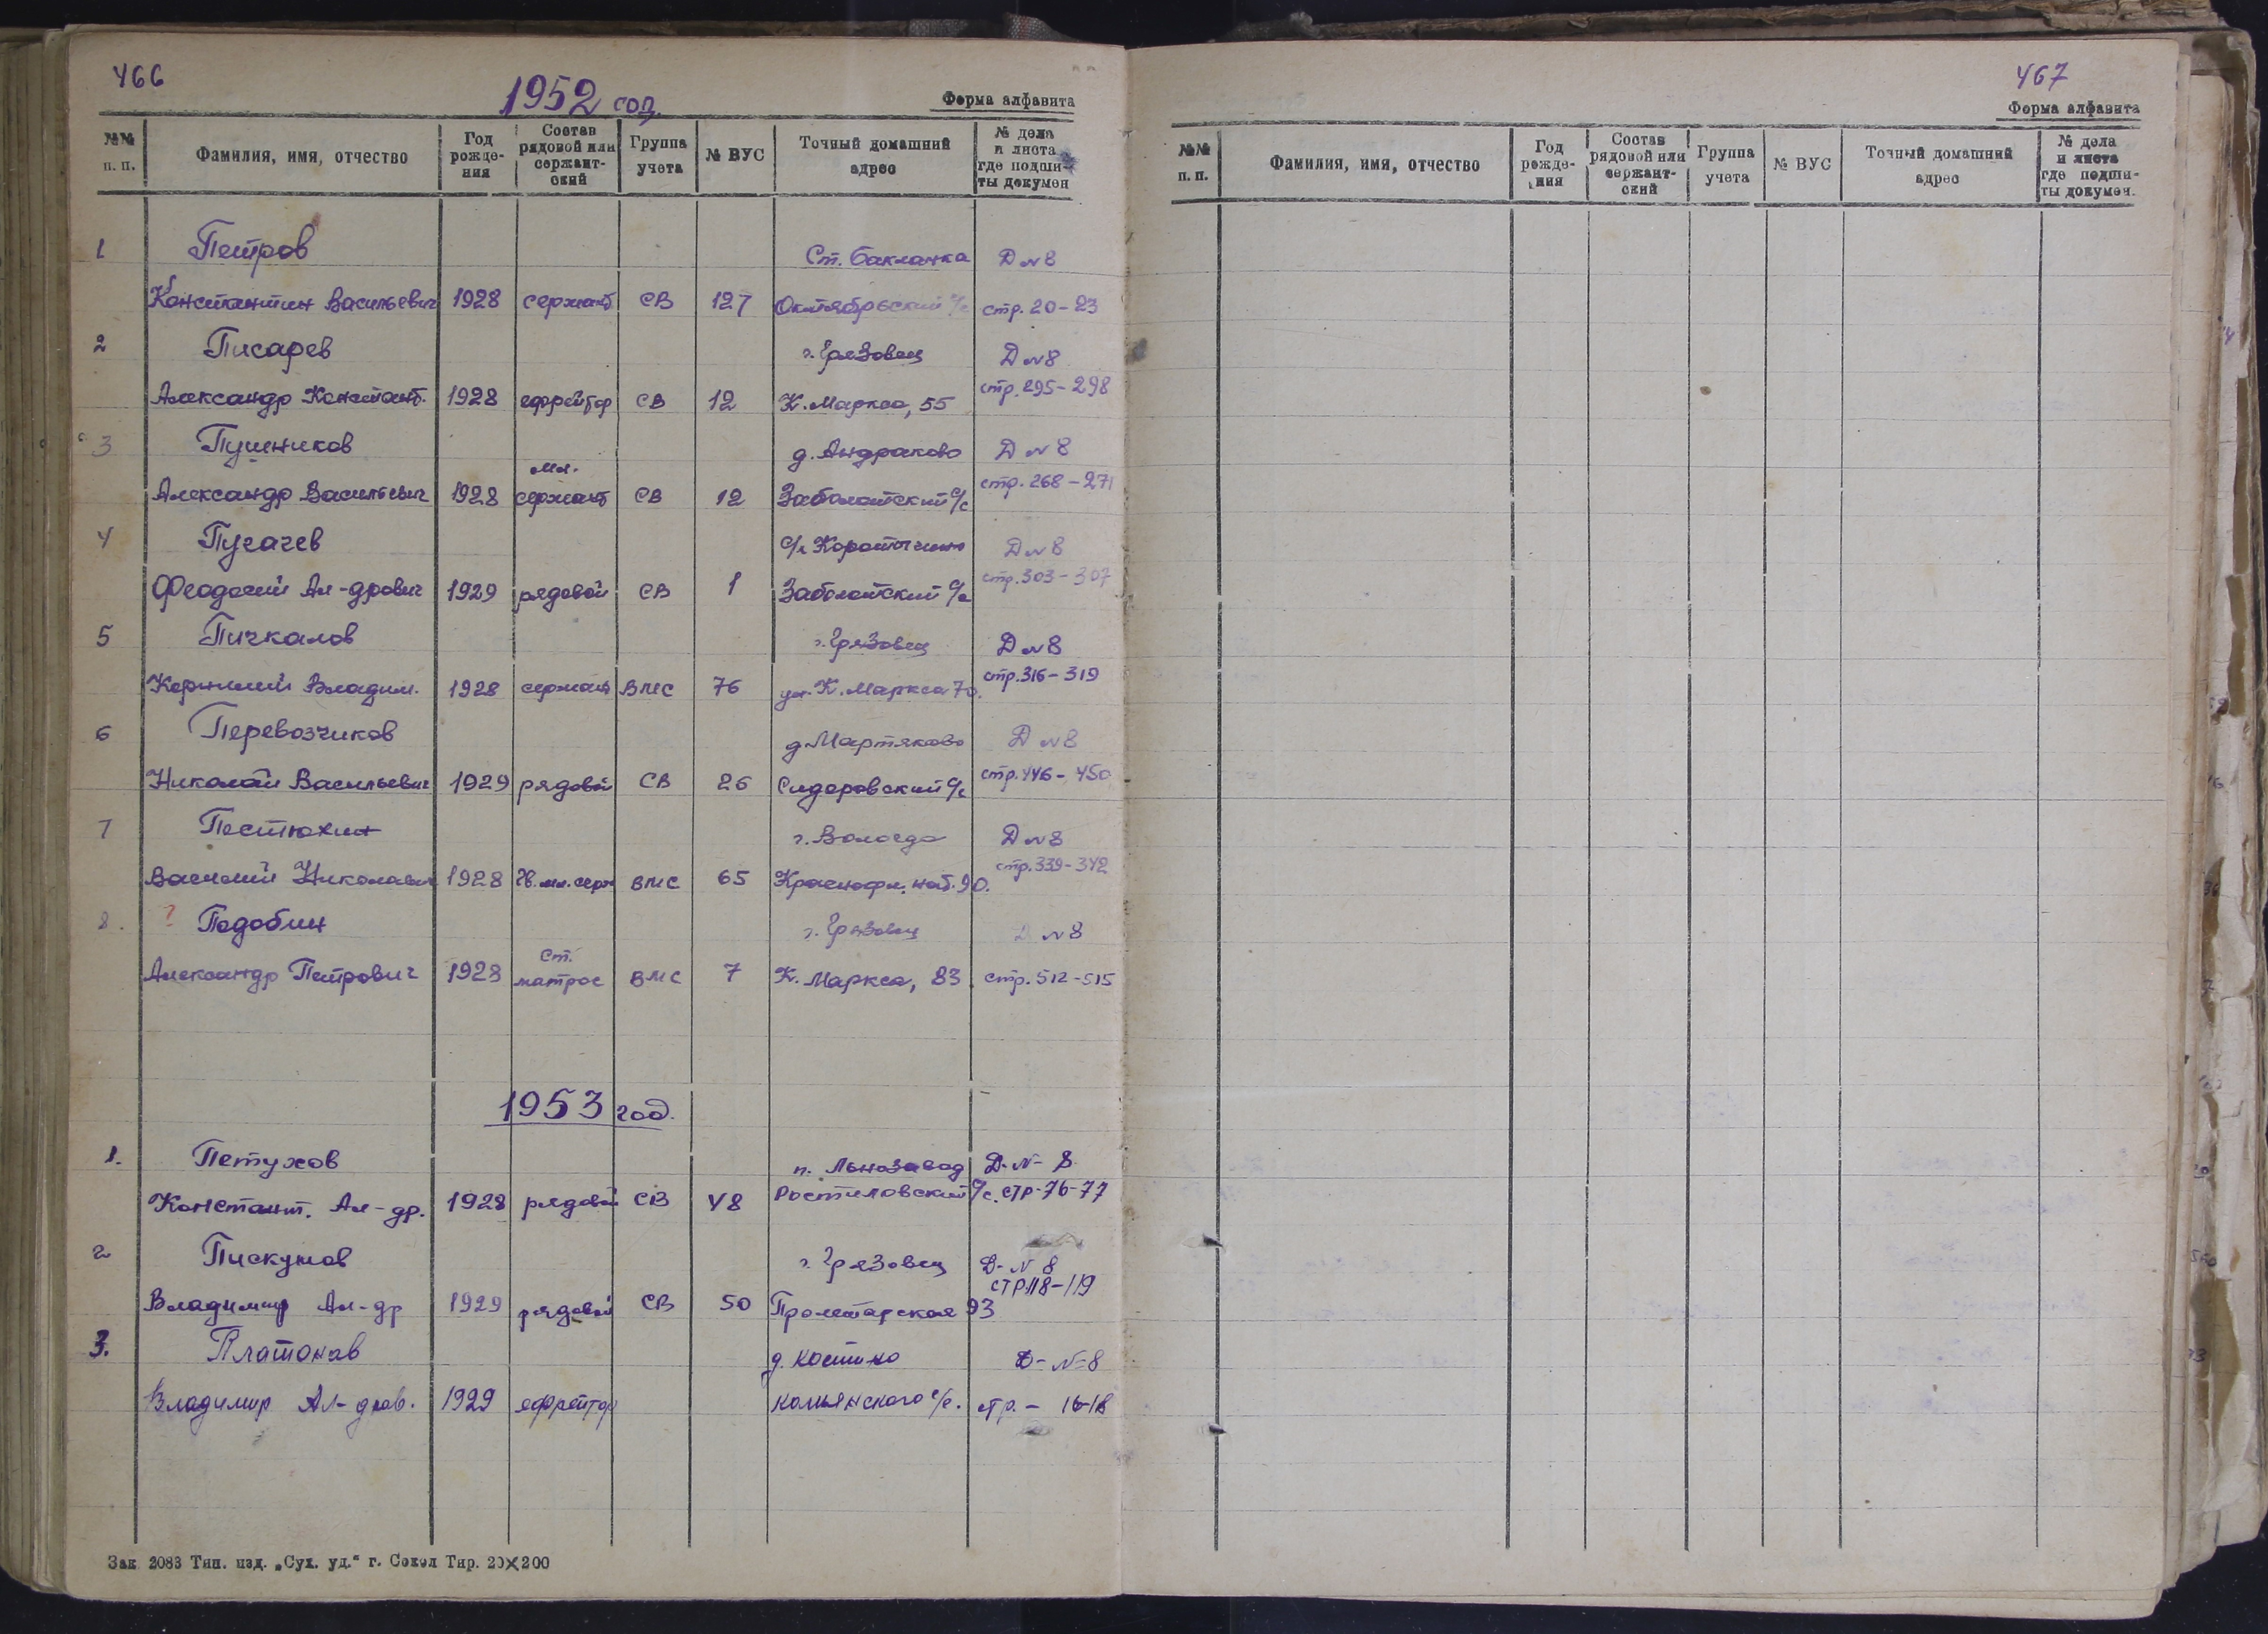 466
1952 год.
Форма алфавита
№№ п. п. Фамилия, имя, отчество Год рожде-ния Состав рядовой или сержант-ский Группа учета № ВУС Точный домашний адрес № дела и листа где подши-ты докумен
1 Петров Ст. Бакланка Д №8
Константин Васильевич 1928 сержант СВ 127 Октябрьский с/с стр. 20-23
2 Писарев г. Грязовец Д №8
Александр Констант. 1928 ефрейтор СВ 12 К. Маркса, 55 стр. 295-298
3 Пушников д. Андраково Д №8
Александр Васильевич 1928 мл. сержант СВ 12 Заболотский с/с стр. 268-271
4 Пугачев Д №8
Феодосий Ал-дрович 1929 рядовой СВ 1 Заболотский с/с стр. 303-307
5 Пичкалов г. Грязовец Д №8
Корнилий Владим. 1928 сержант ВМС 76 ул. К. Маркса 70. стр. 316-319
6 Перевозчиков д. Мартяково Д №8
Николай Васильевич 1929 рядовой СВ 26 Сидоровский с/с стр. 446-450
7 Пестюхин г. Вологда Д №8
Василий Николаевич 1928 гв. мл. серж ВМС 65 Краснофл. наб. 90. стр. 339-342
8. ? Подобин г. Грязовец Д №8
Александр Петрович 1928 ст. матрос ВМС 7 К. Маркса, 83 стр. 512-515
1953 год.
1. Петухов п. Льнозавод Д-№- 8
Констант. Ал-др. 1928 рядовой СВ 48 Ростиловский с/с. стр-76-77
2 Пискунов г. Грязовец Д-№ 8
Владимир Ал-др 1929 рядовой СВ 50 Пролетарская 93 стр 118-119
3. Платонов д. Костино Д-№-8
Владимир Ал-дров. 1929 ефрейтор Комьянского с/с. стр. - 16-18
Зак 2083 Тип. изд. „Сух. уд.“ г. Сокол Тир. 20×200
467
Форма алфавита
№№ п. п. Фамилия, имя, отчество Год рожде-ния Состав рядовой или сержант-ский Группа учета № ВУС Точный домашний адрес № дела и листа где подши-ты докумен.